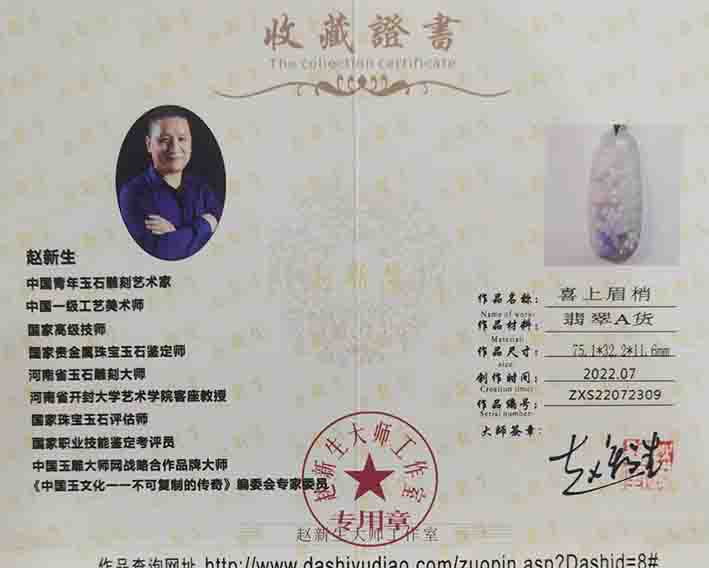 收藏證書
The collection certificate
赵新生
中国青年玉石雕刻艺术家
中国一级工艺美术师
国家高级技师
国家贵金属珠宝玉石鉴定师
河南省玉石雕刻大师
河南省开封大学艺术学院客座教授
国家珠宝玉石评估师
国家职业技能鉴定考评员
中国玉雕大师网战略合作品牌大师
《中国玉文化一一不可复制的传奇》编委会专家委员
作品名称： 喜上眉梢
Name of works:
作品材料： 翡翠A货
Material:
作品尺寸： 75.1*32.2*11.6mm
Size:
创作时间： 2022.07
Creation time:
作品编号： ZXS22072309
Serial number:
大师签章：
赵新生
赵新生大师工作室
专用章
赵新生大师工作室
作品查询网址 http://www.dashiyudiao.com/zuopin.asp?Dashid=8#